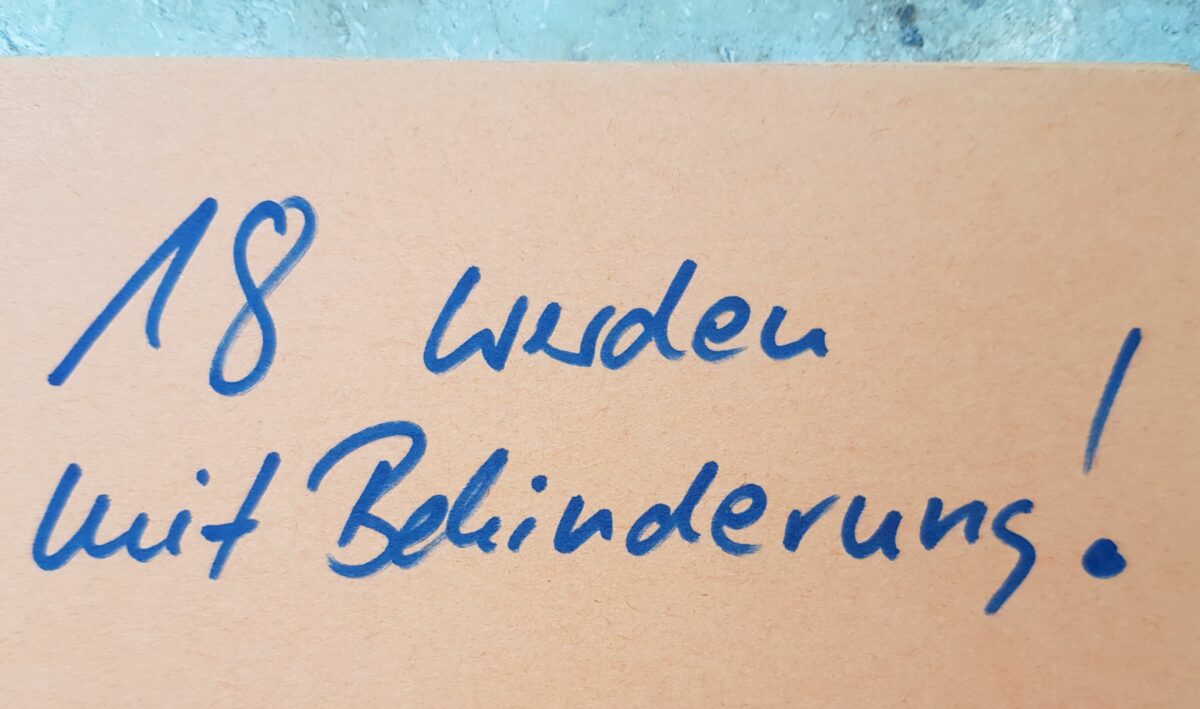 18 werden
mit Behinderung!